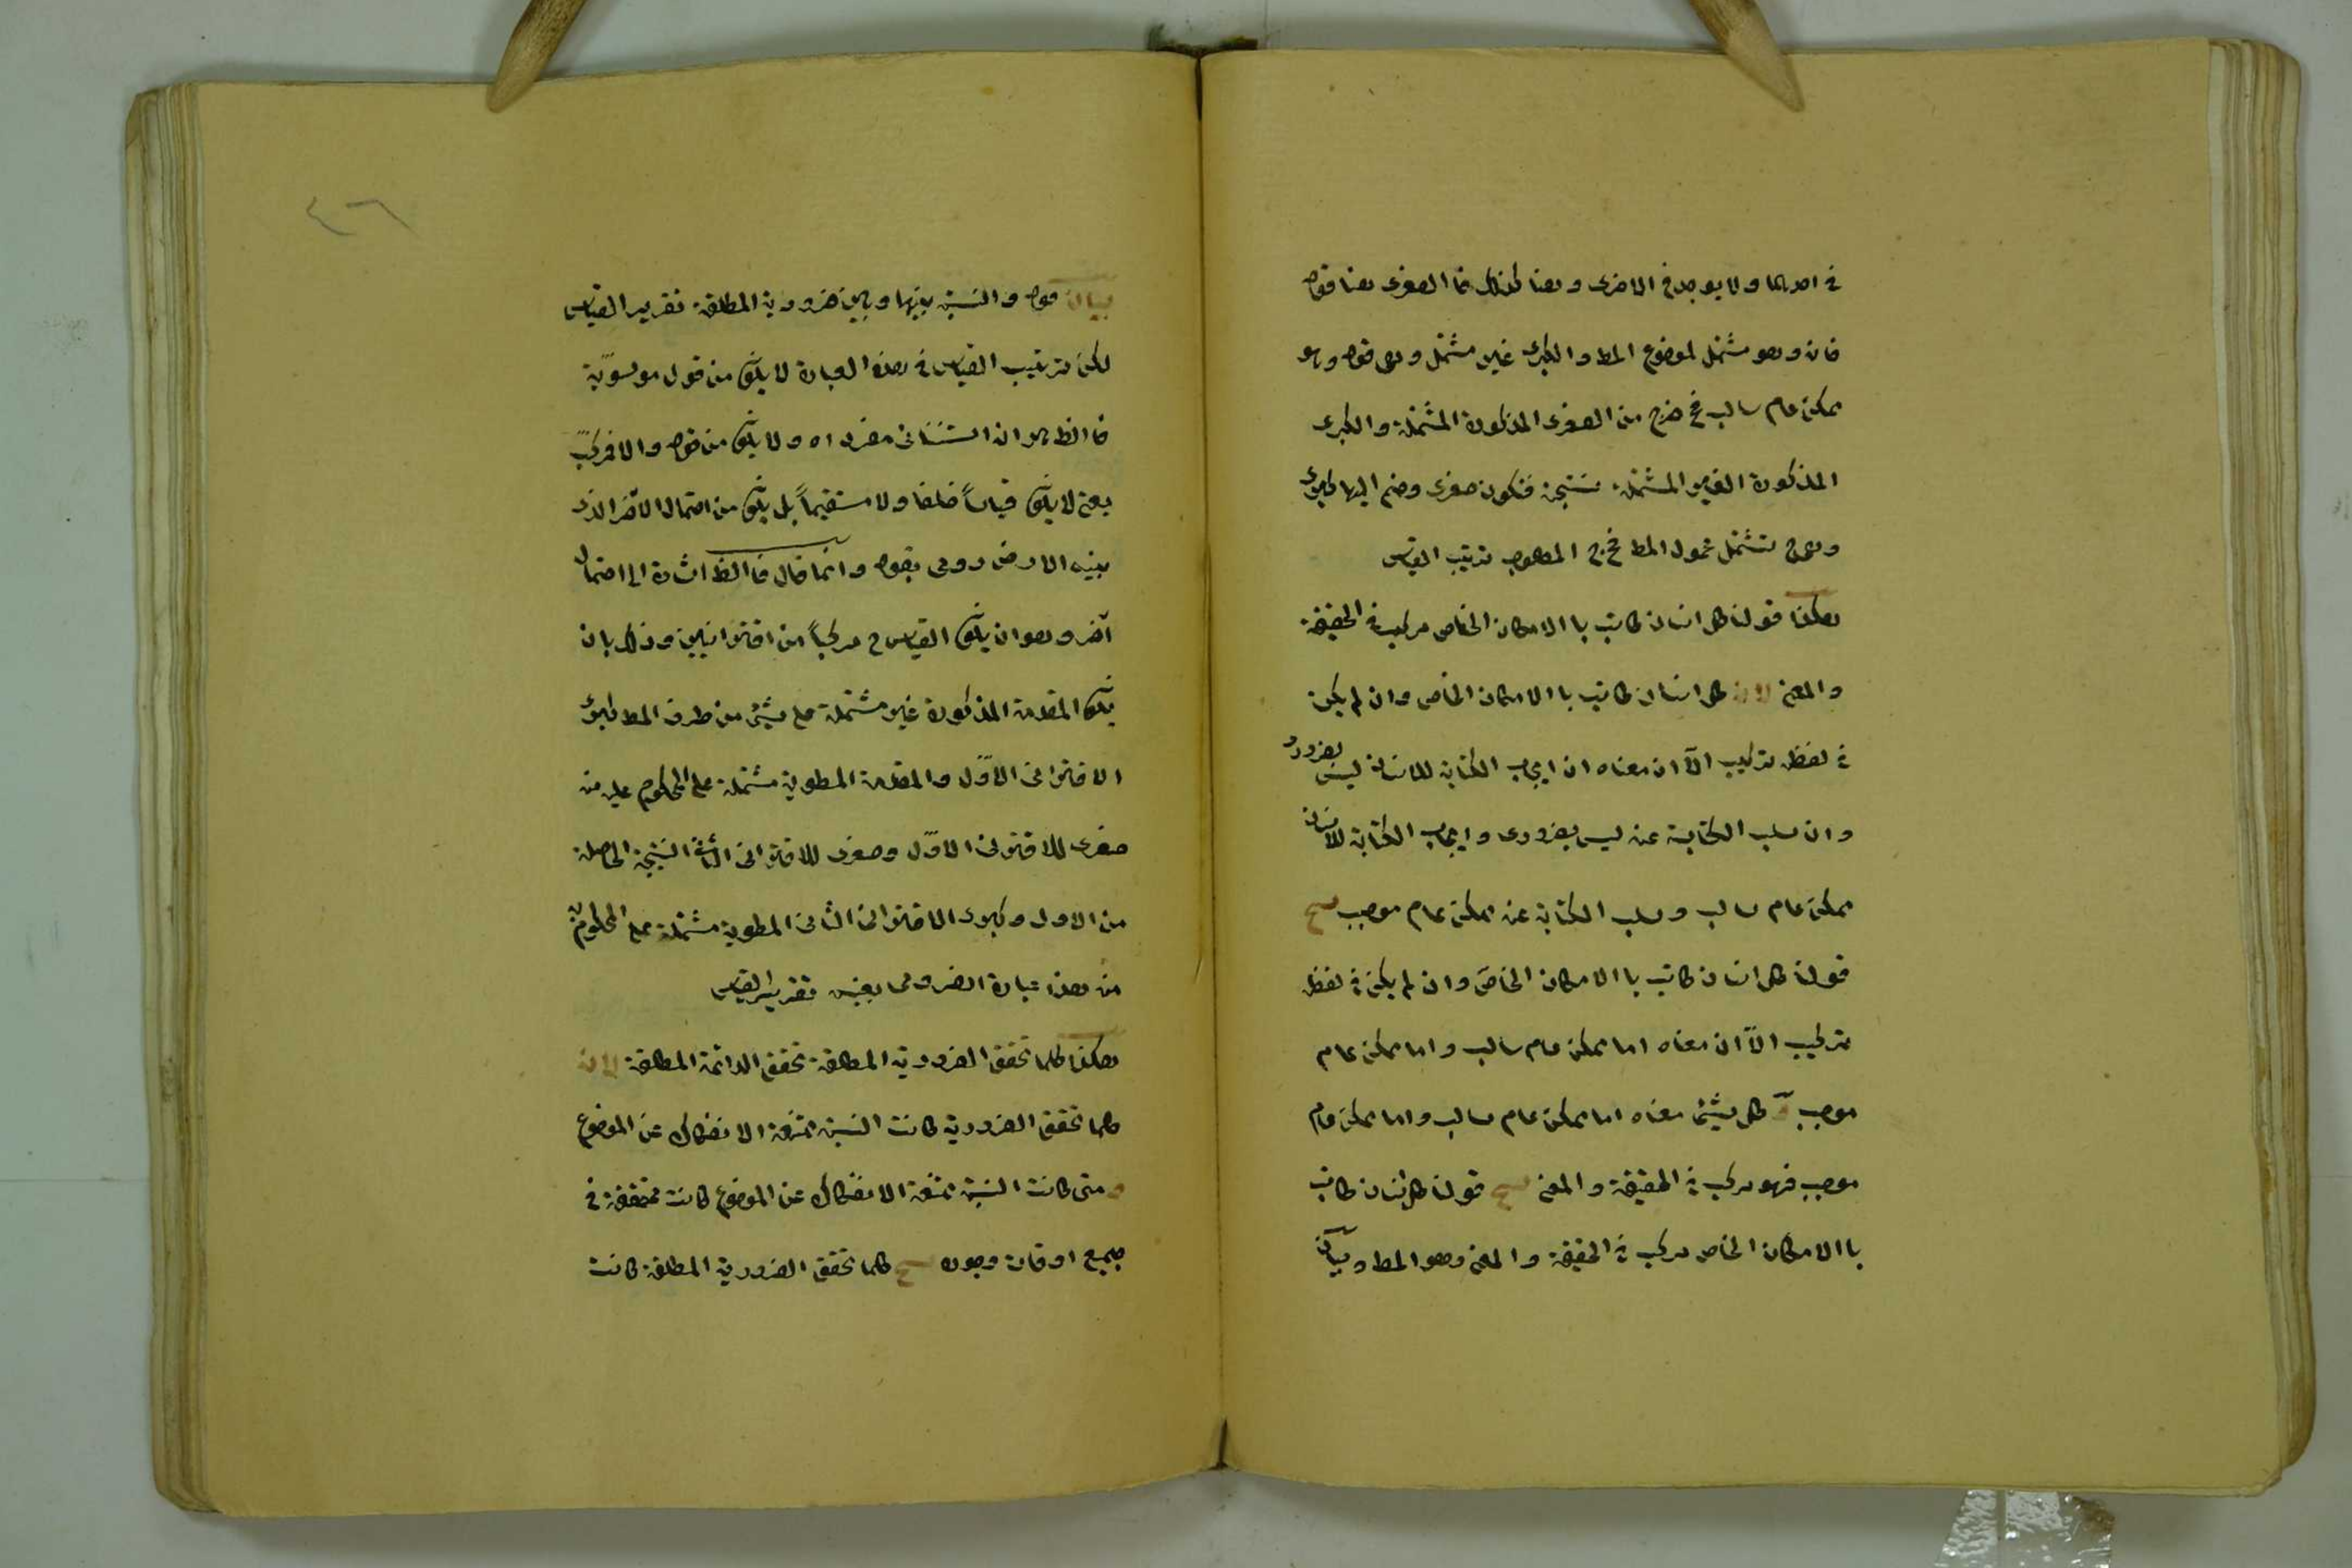 في احديهما ولا يوجد في الاخرى وهنا كذلك فا الصغرى هنا قوله
فان وهو مشتمل لموضوع المط والكبرى غير مشتمل وهي قوله وهو
ممكن عام سالب فخ خرج من الصغرى المذكورة المشتملة والكبرى
المذكورة الغير المشتملة نتيجة فتكون صغرى وضم اليها كبرى
وهي تشتمل محمول المط فخرج المطلوب ترتيب القياس
هكذا قولنا كل انسان كاتب با الامكان الخاص مركب في الحقيقة
والمعنى لان كل انسان كاتب با الامكان الخاص وان لم يكن
في لفظه تركيب الّا ان معناه ان ايجاب الكتابة للانسان ليس بضرورى
وان سلب الكتابة عنه ليس بضرورى وايجاب الكتابة للانسان
ممكن عام سالب وسلب الكتابة عنه ممكن عام موجب
قولنا كل انسان كاتب با الامكان الخاص وان لم يكن في لفظه
تركيب الّا ان معناه اما ممكن عام سالب واما ممكن عام
موجب كل شيئ معناه اما ممكن عام سالب واما ممكن عام
موجب فهو مركب في الحقيقة والمعنى قولنا كل انسان كاتب
با الامكان الخاص مركب في الحقيقة والمعنى وهو المط وبيان
٤٦
بيان قوله والنسبة بينها وبين ضرورية المطلقة تقرير القياس
لكن ترتيب القياس في هذه العبارة لا يكون من قول
فا الظ هو ان استثنائى مفرد اه ولا يكون من قوله والا فمركب
يعنى لا يكون قياساً خلفا ولا مستقيماً بل يكون من احتمال الآخر الذى
بينه الارضرومى بقوله وانما قال فا الظ اشارة الى احتمال
آخر وهو ان يكون القياس ح مركباً من اقترانيين وذلك بان
يكون المقدمة المذكورة غير مشتملة على شيئ من طرف المط كبرى
الاقترانى الاوّل والمقدمة المطوية مشتملة على المحكوم عليه منه
صغرى للاقترانى الاوّل وصغرى للاقترانى الثانى النتيجة الحاصلة
من الاول وكبرى الاقترانى الثانى المطوية مشتملة على المحكوم به
منه هذا عبارة الضرومى بعينه تقرير القياس
هكذا كلما تحقق الضرورية المطلقة تحقق الدائمة المطلقة لان
كلما تحقق الضرورية كانت النسبة ممتنعة الانفكاك عن الموضوع
ومتى كانت النسبة ممتنعة الانفكاك عن الموضوع كانت متحققة في
جميع اوقات وجوده كلما تحقق الضرورية المطلقة كانت